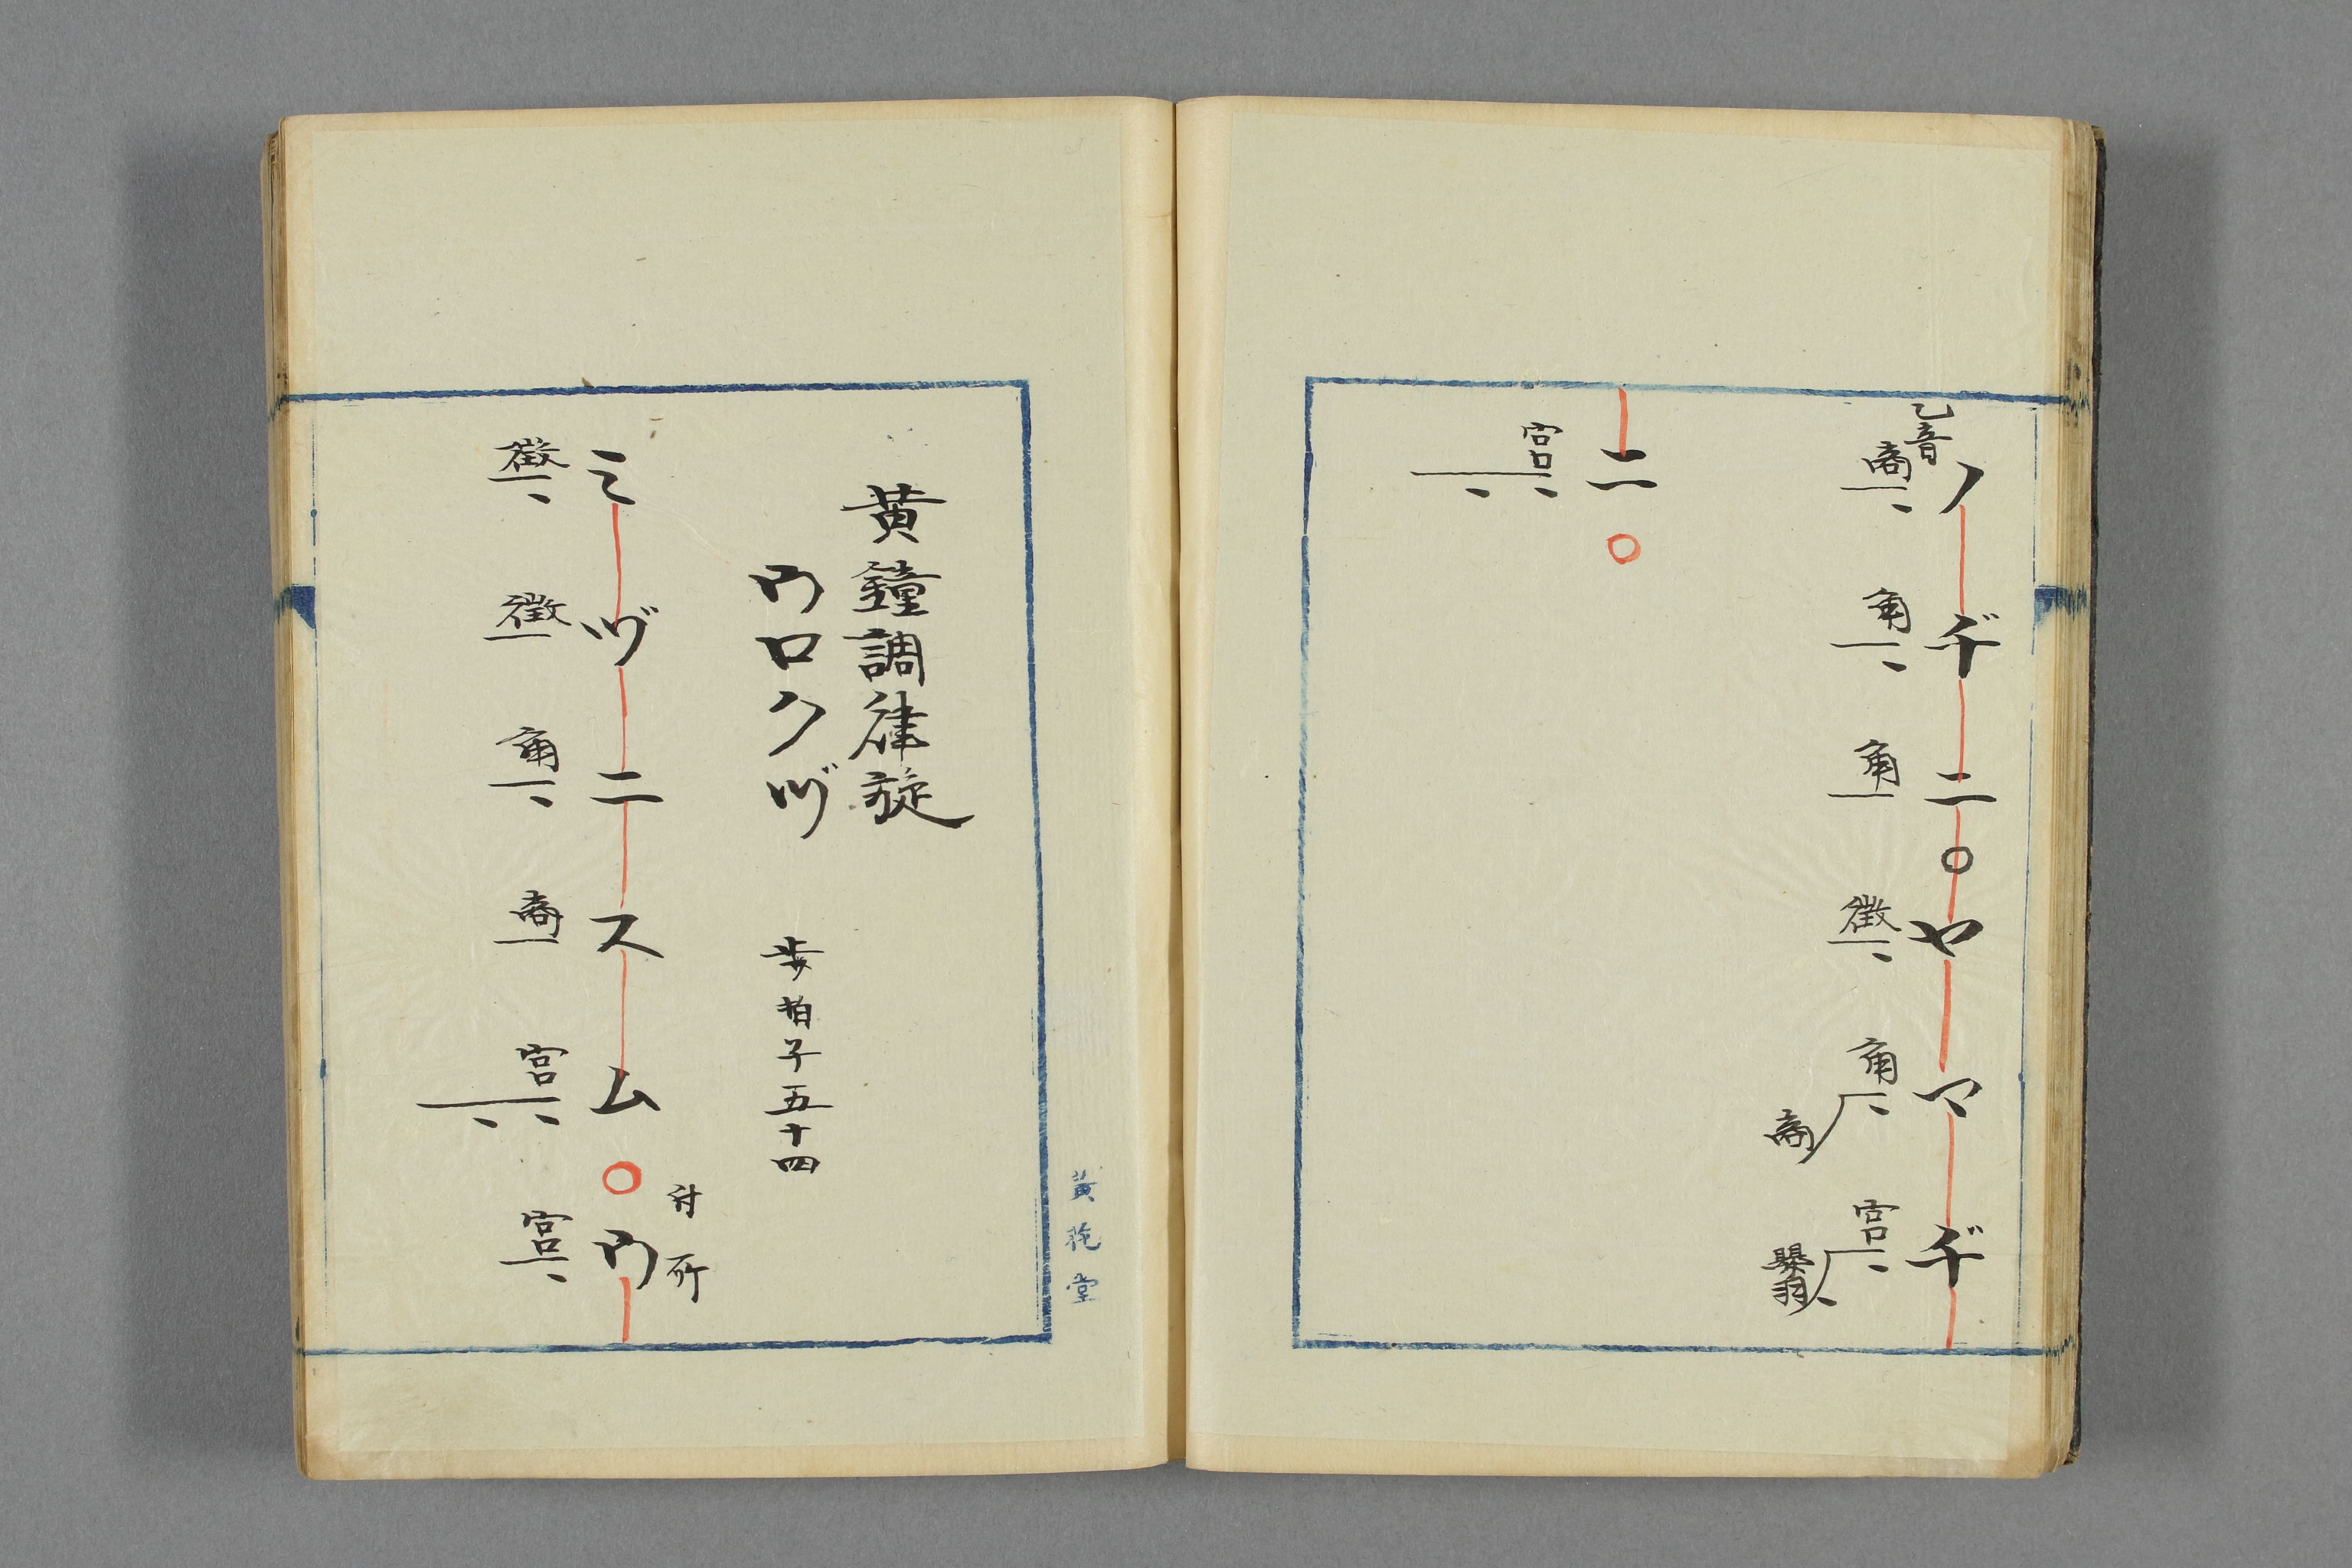 乙音
ノヂニ〇ヤマヂ
商 角 角 徴 角 宮
商 嬰羽
ニ〇
宮
黄 堂
黄鐘調律旋
ウロクヅ 歩拍子五十四
付所
ミヅニスム〇ウ
徴 徴 角 商 宮 宮